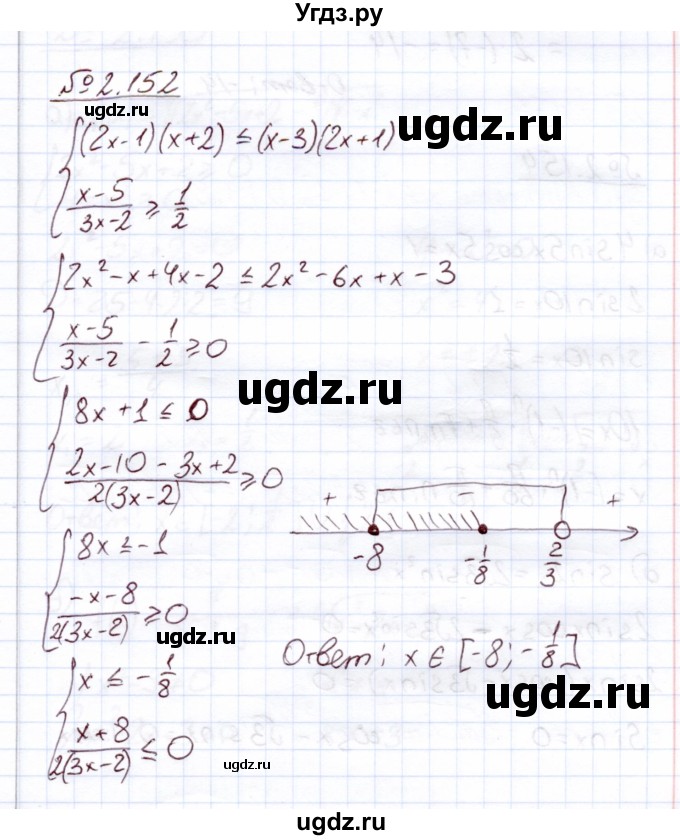 Угдз.ру
№ 2.152
ugdz.ru
ugdz.ru
{ (2x-1)(x+2) ≤ (x-3)(2x+1)
{ (x-5)/(3x-2) ≥ 1/2
{ 2x² - x + 4x - 2 ≤ 2x² - 6x + x - 3
{ (x-5)/(3x-2) - 1/2 ≥ 0
ugdz.ru
{ 8x + 1 ≤ 0
{ (2x - 10 - 3x + 2)/(2(3x-2)) ≥ 0
+ - +
-8 -1/8 2/3
{ 8x ≤ -1
{ (-x-8)/(2(3x-2)) ≥ 0
ugdz.ru
Ответ: x ∈ [-8; -1/8]
ugdz.ru
{ x ≤ -1/8
{ (x+8)/(2(3x-2)) ≤ 0
ugdz.ru
ugdz.ru